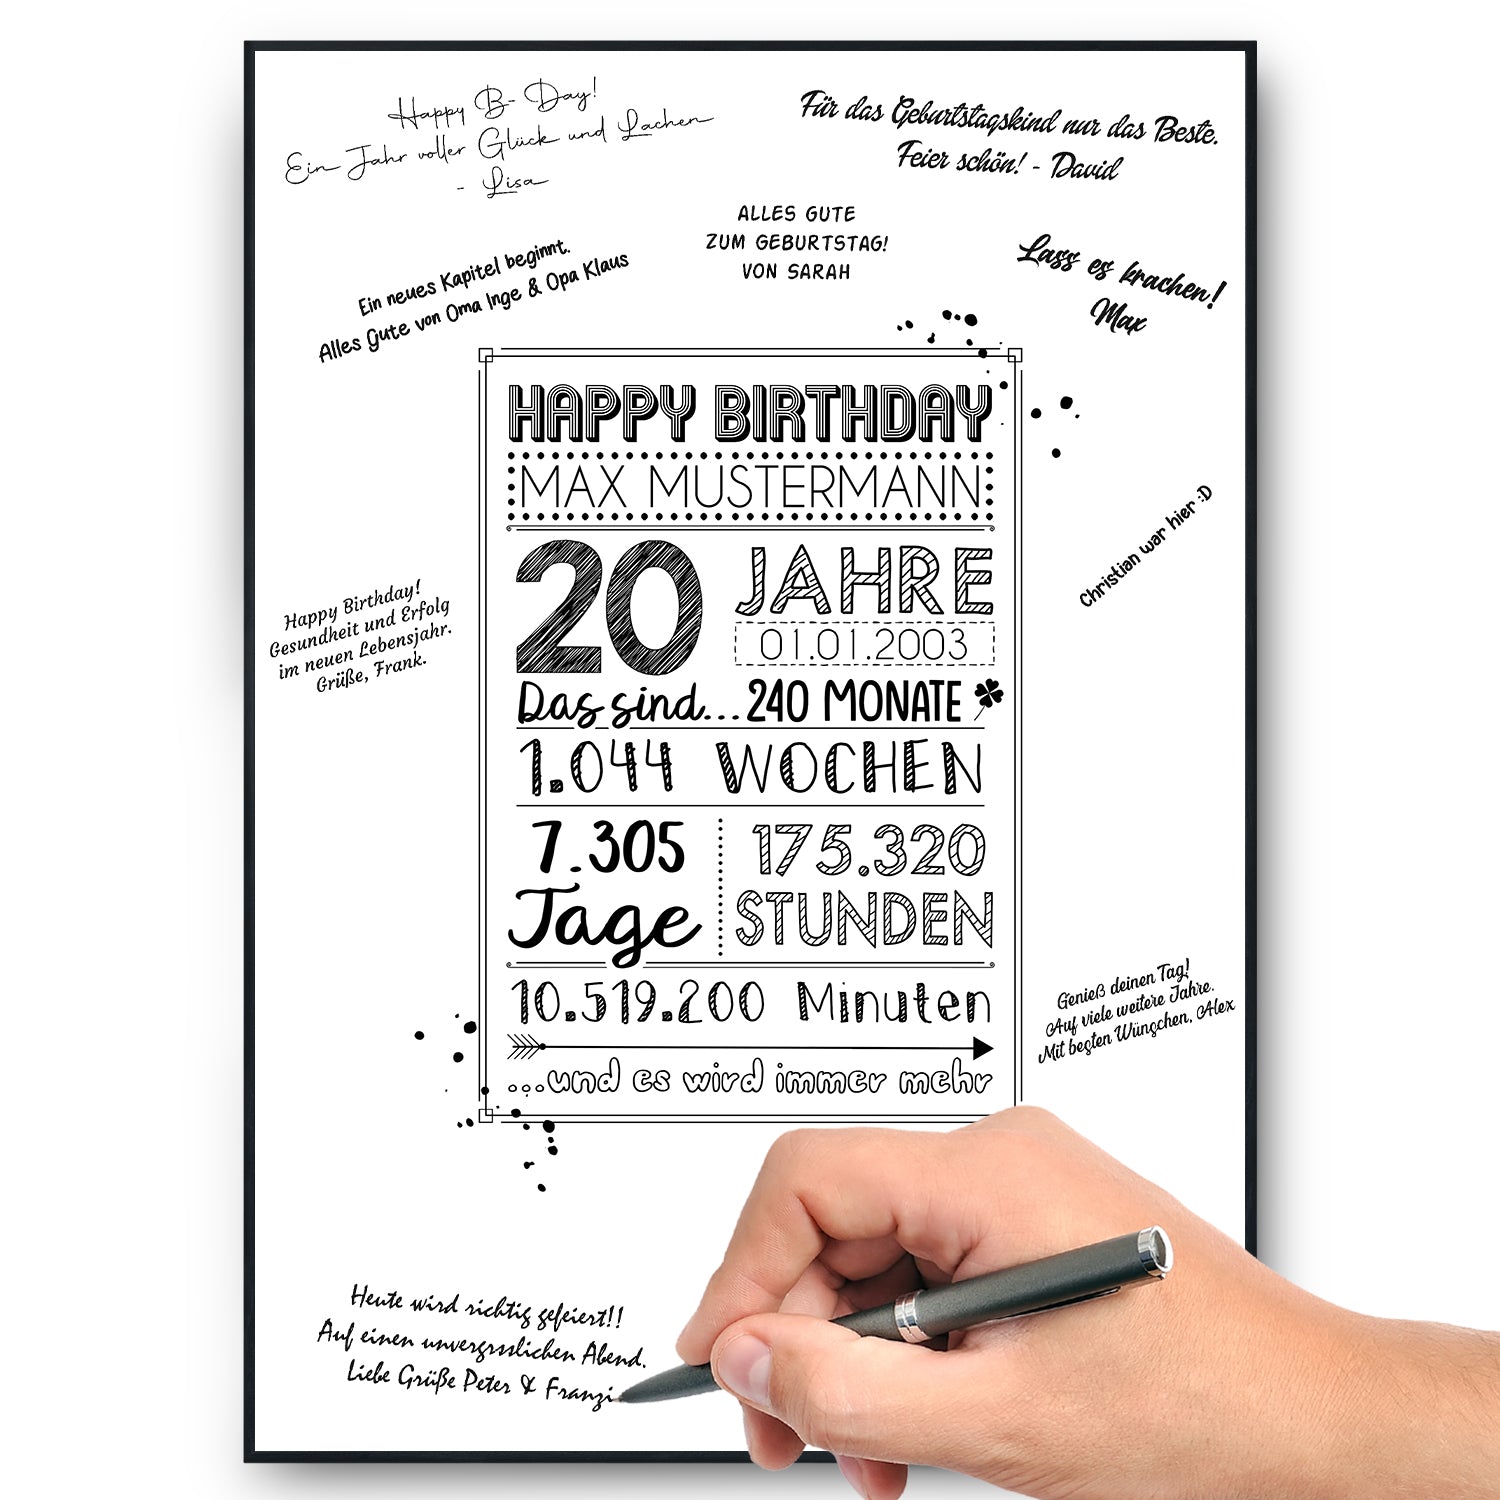 Happy B- Day!
Ein Jahr voller Glück und Lachen
- Lisa
Für das Geburtstagskind nur das Beste.
Feier schön! - David
ALLES GUTE
ZUM GEBURTSTAG!
VON SARAH
Ein neues Kapitel beginnt.
Alles Gute von Oma Inge & Opa Klaus
Lass es krachen!
Max
HAPPY BIRTHDAY
MAX MUSTERMANN
20 JAHRE
01.01.2003
Das sind... 240 MONATE
1.044 WOCHEN
7.305
Tage
175.320
STUNDEN
10.519.200 Minuten
...und es wird immer mehr
Christian war hier :D
Happy Birthday!
Gesundheit und Erfolg
im neuen Lebensjahr.
Grüße, Frank.
Genieß deinen Tag!
Auf viele weitere Jahre.
Mit besten Wünschen, Alex
Heute wird richtig gefeiert!!
Auf einen unvergrsslichen Abend.
Liebe Grüße Peter & Franzi